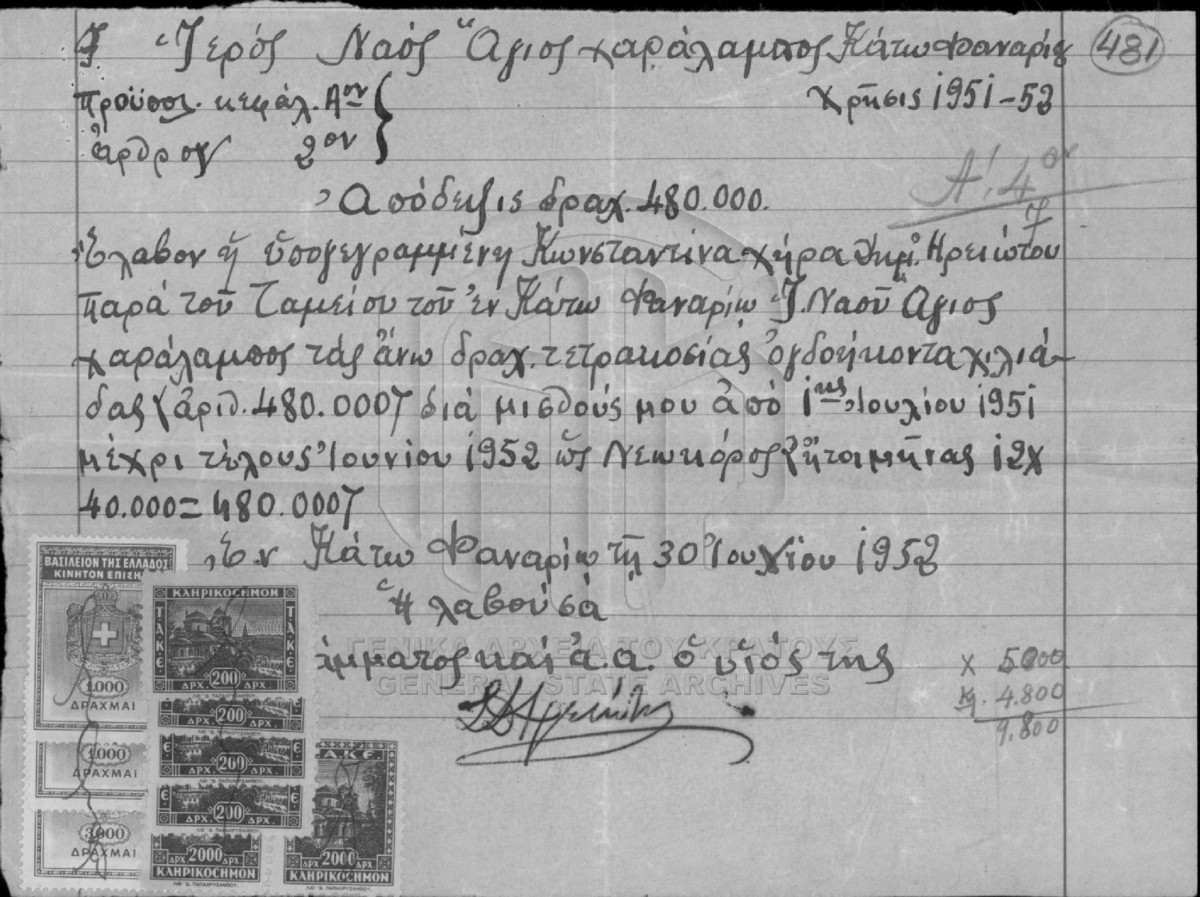 Ἱερός Ναός Ἅγιος Χαράλαμπος Κάτω Φαναρίου
481
Προϋπολ. κεφάλ. Αον
ἄρθρου 2ον
Χρῆσις 1951-52
Α! 4ον
Ἀπόδειξις δραχ. 480.000.
Ἔλαβον ἡ ὑπογεγραμμένη Κωνσταντίνα χήρα Δημ. Ἀρειώτου
παρά τοῦ Ταμείου τοῦ ἐν Κάτω Φαναρίῳ Ἱ. Ναοῦ Ἅγιος
Χαράλαμπος τάς ἄνω δραχ. τετρακοσίας ὀγδοήκοντα χιλιά-
δας (ἀριθ. 480.000) διά μισθούς μου ἀπό 1ης Ἰουλίου 1951
μέχρι τέλους Ἰουνίου 1952 ὡς Νεωκόρος (ἤτοι μῆνας 12Χ
40.000=480.000)
Ἐν Κάτω Φαναρίῳ τῇ 30 Ἰουνίου 1952
Ἡ λαβοῦσα
άμματος καί ἀ.α. ὁ υἱός της
Χ 5000
Κ. 4.800
9.800
ΒΑΣΙΛΕΙΟΝ ΤΗΣ ΕΛΛΑΔΟΣ
ΚΙΝΗΤΟΝ ΕΠΙΣΗ
1.000
ΔΡΑΧΜΑΙ
1.000
ΔΡΑΧΜΑΙ
3.000
ΔΡΑΧΜΑΙ
ΚΛΗΡΙΚΟΣΗΜΟΝ
Τ.Α.Κ.Ε.
ΔΡΧ. 200 ΔΡΧ.
200
ΔΡΧ. 200 ΔΡΧ.
ΔΡΧ. 200 ΔΡΧ.
ΔΡΧ 2000 ΔΡΧ
ΚΛΗΡΙΚΟΣΗΜΟΝ
Α.Κ.Ε.
ΔΡΧ 2000 ΔΡΧ
ΚΛΗΡΙΚΟΣΗΜΟΝ
ΓΕΝΙΚΑ ΑΡΧΕΙΑ ΤΟΥ ΚΡΑΤΟΥΣ
GENERAL STATE ARCHIVES